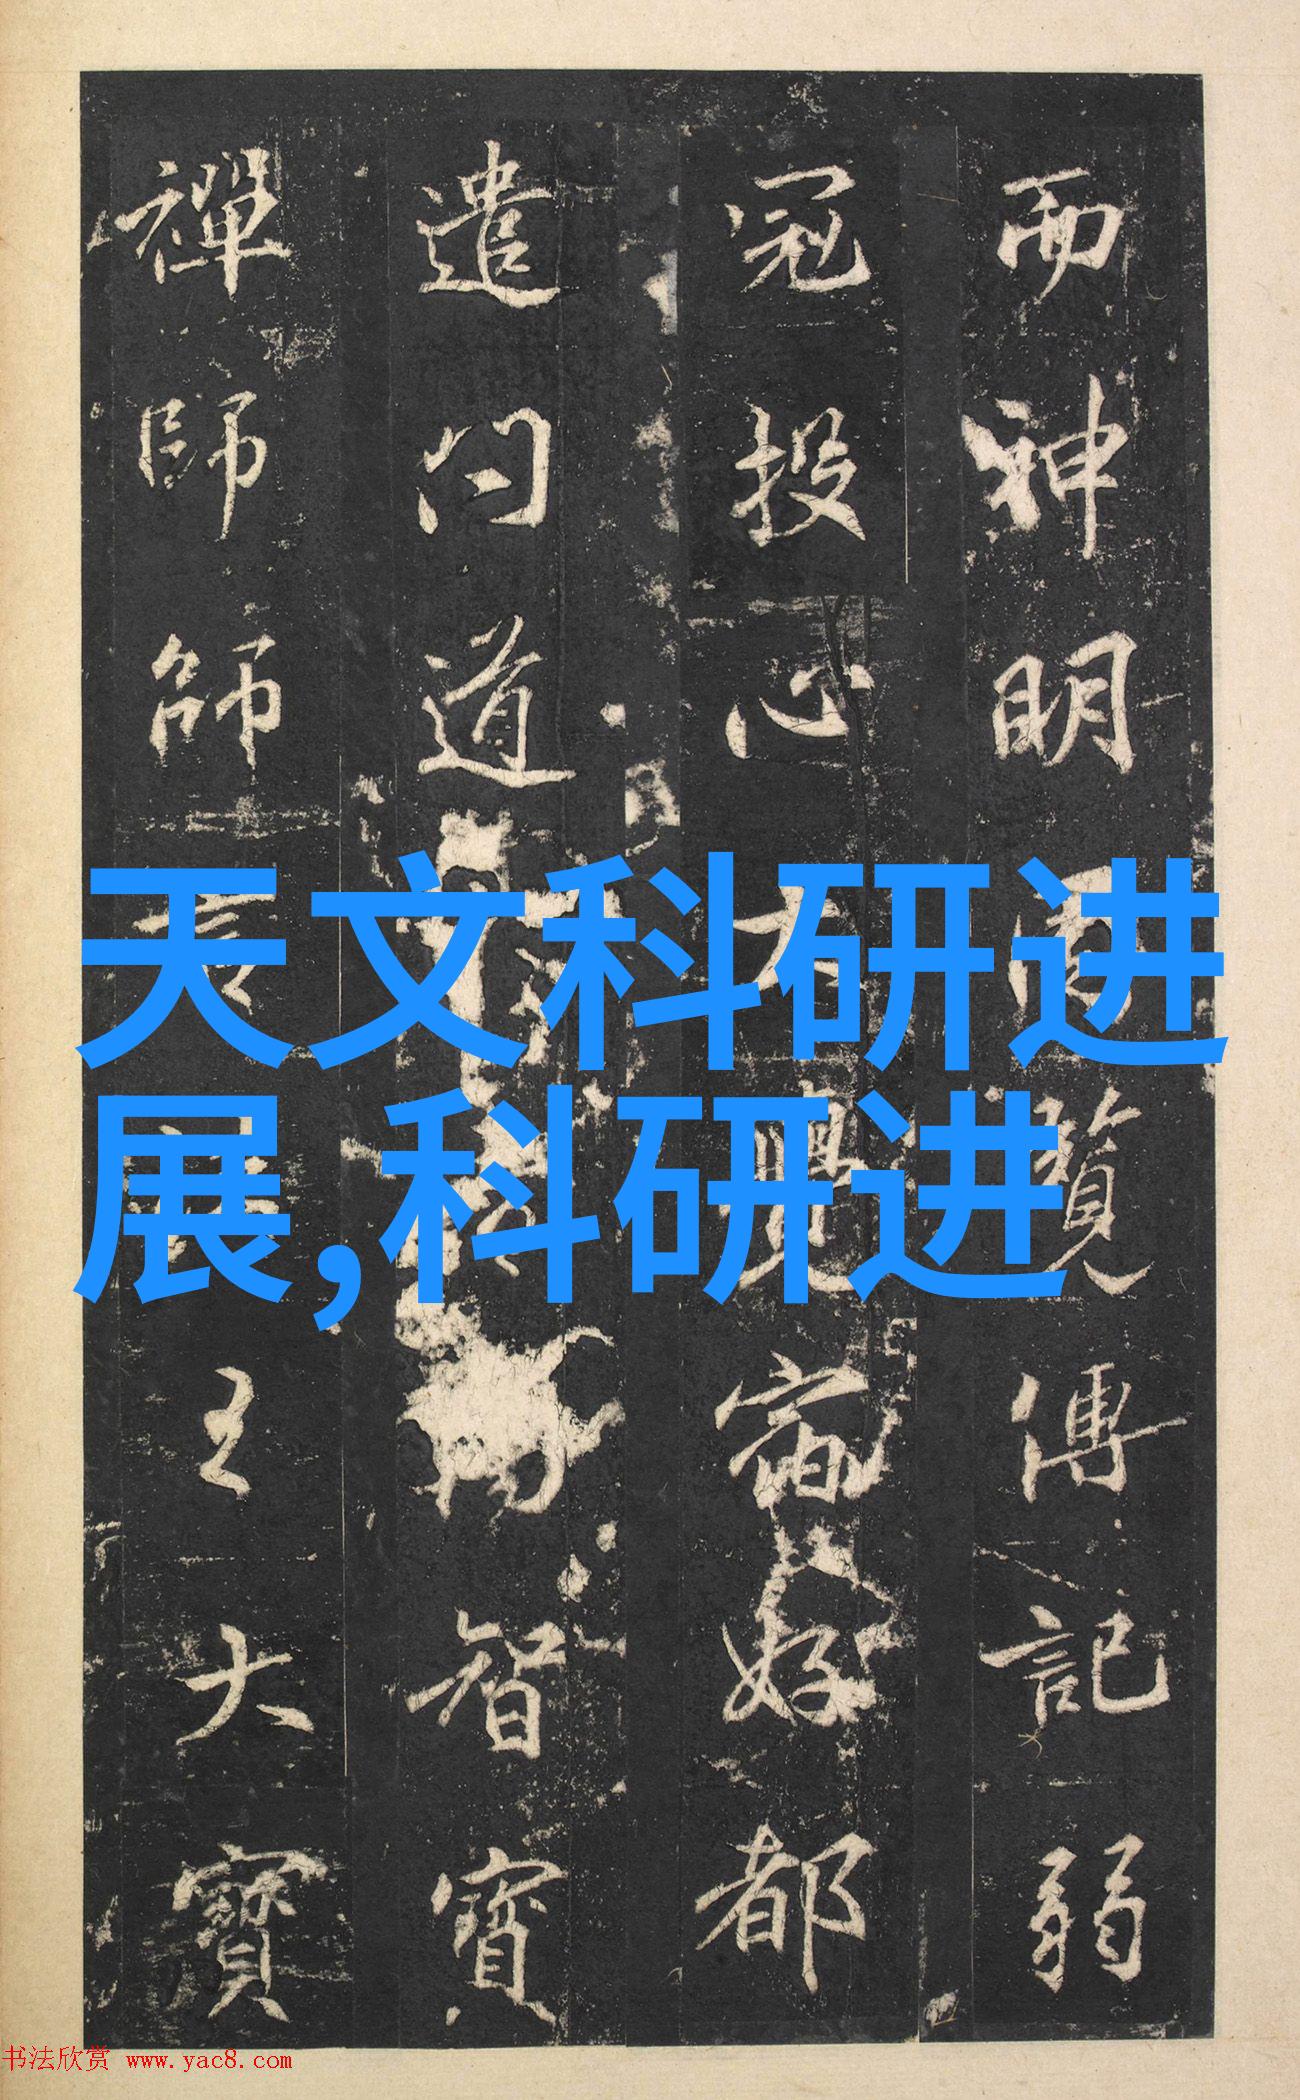 而神明覽傳記弱
冠投心大覺宿好都
遣問道智寶
禪師師主大寶
天文科研进
展,科研进
书法欣赏 www.yac8.com